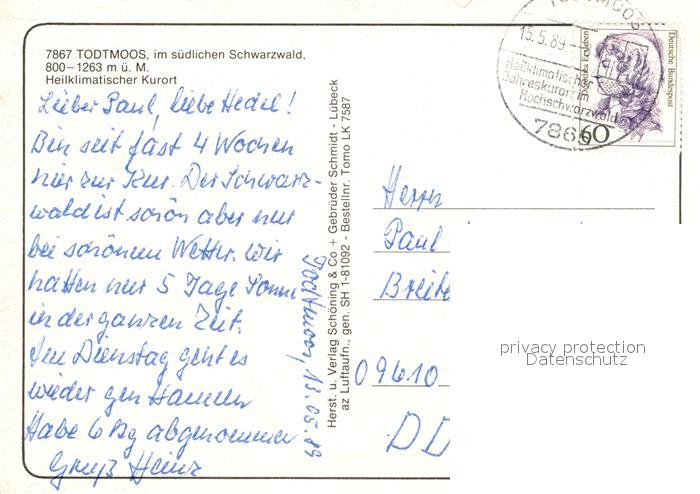 7867 TODTMOOS, im südlichen Schwarzwald,
800–1263 m ü. M.
Heilklimatischer Kurort
Lieber Paul, liebe Hedel!
Bin seit fast 4 Wochen
hier zur Kur. Der Schwarz-
wald ist schön aber nur
bei schönem Wetter. Wir
hatten nur 5 Tage Sonne
in der ganzen Zeit.
Den Dienstag geht es
wieder gen Hameln
Habe 6 kg abgenommen
Gruß Heinz
Todtmoos, 13.05.89
Herst. u. Verlag Schöning & Co + Gebrüder Schmidt - Lübeck
az Luftaufn., gen. SH 1-81092 - Bestellnr. Tomo LK 7587
TODTMOOS
15.5.89
Heilklimatischer
Jahreskurort im
Hochschwarzwald
7867
Deutsche Bundespost
60
Herrn
Paul
Breite
09610
DD
privacy protection
Datenschutz